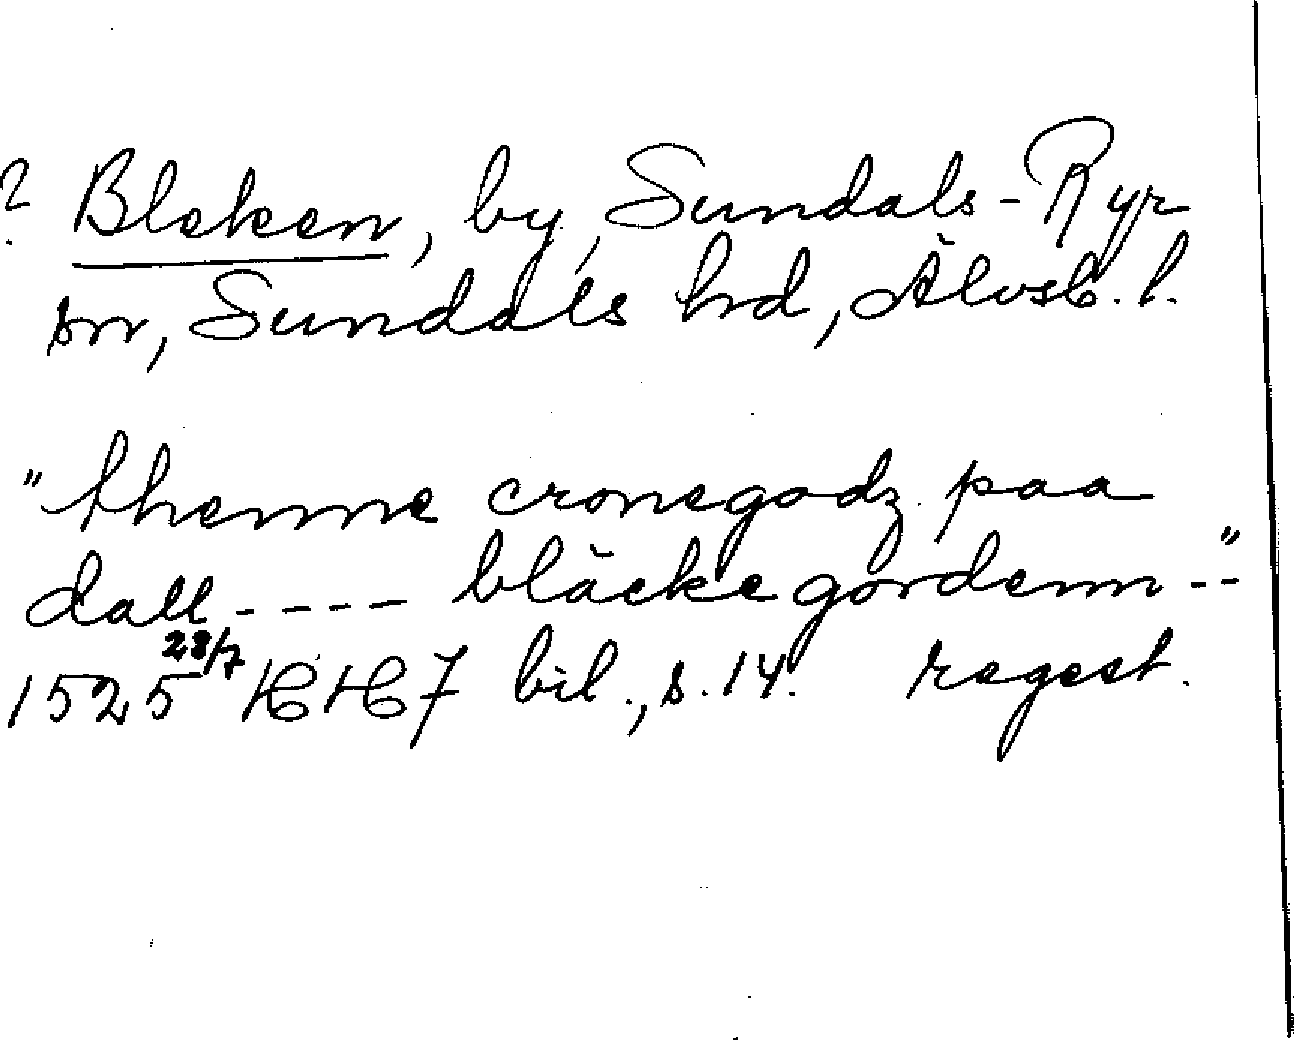 ? Bleken, by, Sundals-Ryr
sn, Sundals hd, Älvsb. l.
"thenne cronegodz paa
dall ---- bläcke gordenn --"
1525 28/7 HH 7 bil., s. 14. regest.